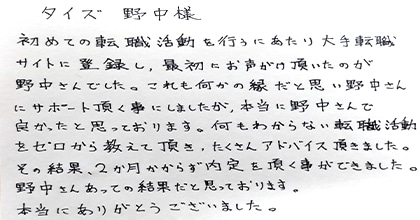 タイズ 野中様
初めての転職活動を行うにあたり大手転職
サイトに登録し、最初にお声がけ頂いたのが
野中さんでした。これも何かの縁だと思い野中さん
にサポート頂く事にしましたが、本当に野中さんで
良かったと思っております。何もわからない転職活動
をゼロから教えて頂き、たくさんアドバイス頂きました。
その結果、2か月かからず内定を頂く事ができました。
野中さんあっての結果だと思っております。
本当にありがとうございました。